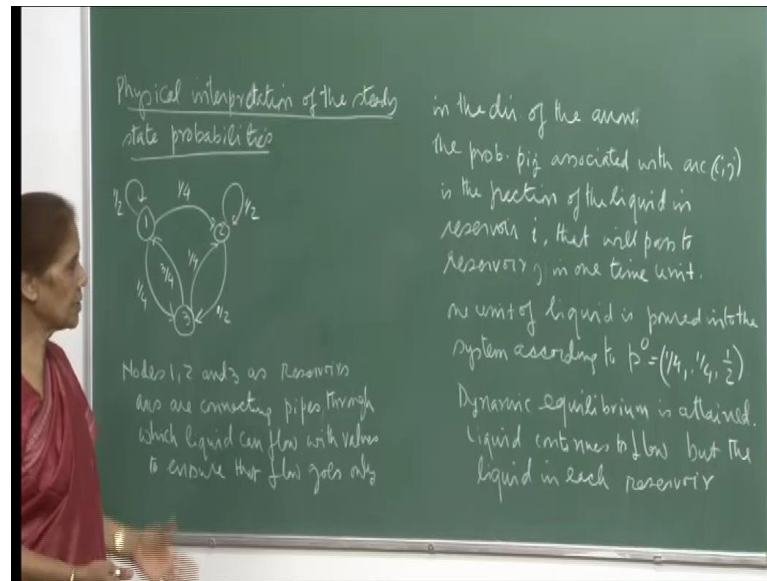 Physical interpretation of the steady
state probabilities
1/2
1/4
1/2
1
2
3/4
1/4
1/4
1/2
3
Nodes 1, 2 and 3 as Reservoirs
arcs are connecting pipes through
which liquid can flow with valves
to ensure that flow goes only
in the dir. of the arrow.
The prob. pij associated with arc (i,j)
is the fraction of the liquid in
reservoir i, that will pass to
reservoir j in one time unit.
One unit of liquid is poured into the
system according to p⁰=(1/4, 1/4, 1/2)
Dynamic equilibrium is attained.
Liquid continues to flow but the
liquid in each reservoir